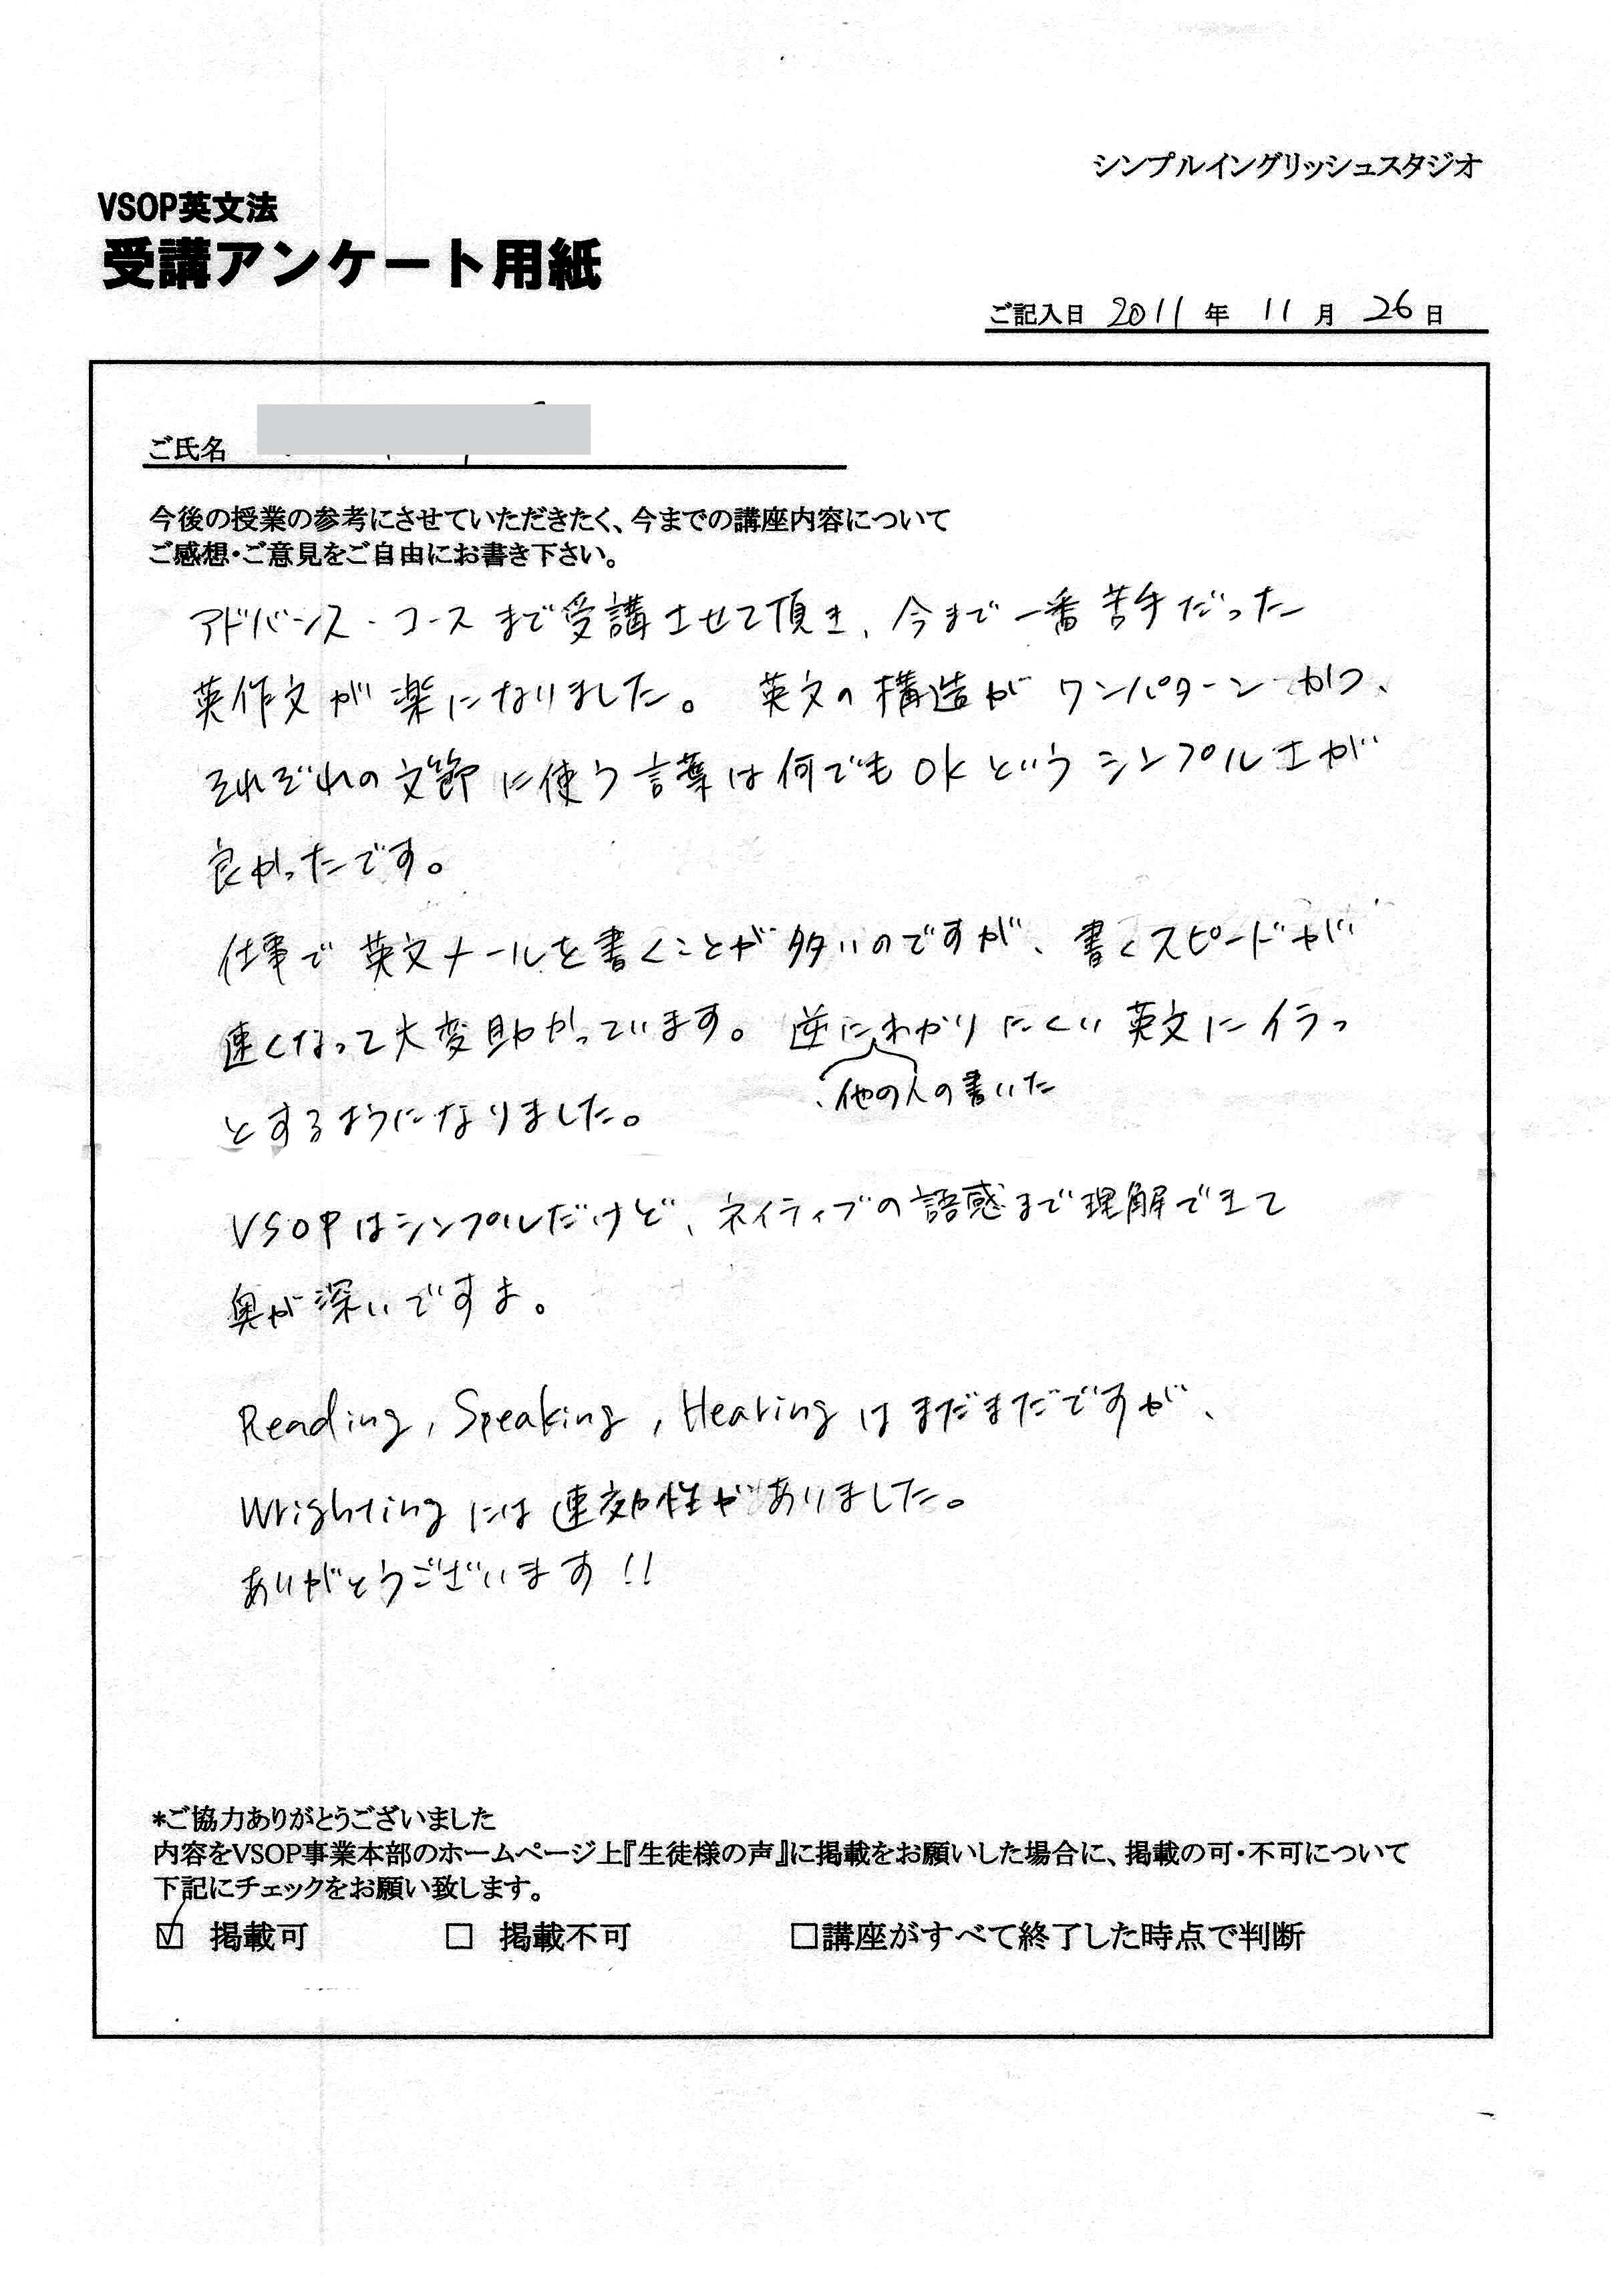 シンプルイングリッシュスタジオ
VSOP英文法
受講アンケート用紙
ご記入日 2011 年 11 月 26 日
ご氏名
今後の授業の参考にさせていただきたく、今までの講座内容について
ご感想・ご意見をご自由にお書き下さい。
アドバンス・コースまで受講させて頂き、今まで一番苦手だった
英作文が楽になりました。 英文の構造がワンパターンかつ、
それぞれの文節に使う言葉は何でもOKというシンプルさが
良かったです。
仕事で英文メールを書くことが多いのですが、書くスピードが
速くなって大変助かっています。 逆にわかりにくい英文にイラっ
他の人の書いた
とするようになりました。
VSOPはシンプルだけど、ネイティブの語感まで理解できて
奥が深いですよ。
Reading, Speaking, Hearingはまだまだですが、
Wrightingには速効性がありました。
ありがとうございます!!
*ご協力ありがとうございました
内容をVSOP事業本部のホームページ上『生徒様の声』に掲載をお願いした場合に、掲載の可・不可について
下記にチェックをお願い致します。
☑ 掲載可 □ 掲載不可 □講座がすべて終了した時点で判断